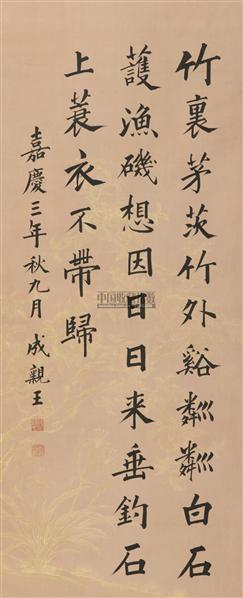 竹裏茅茨竹外谿粼粼白石
護漁磯想因日日来垂釣石
上蓑衣不帶歸
嘉慶三年秋九月 成親王